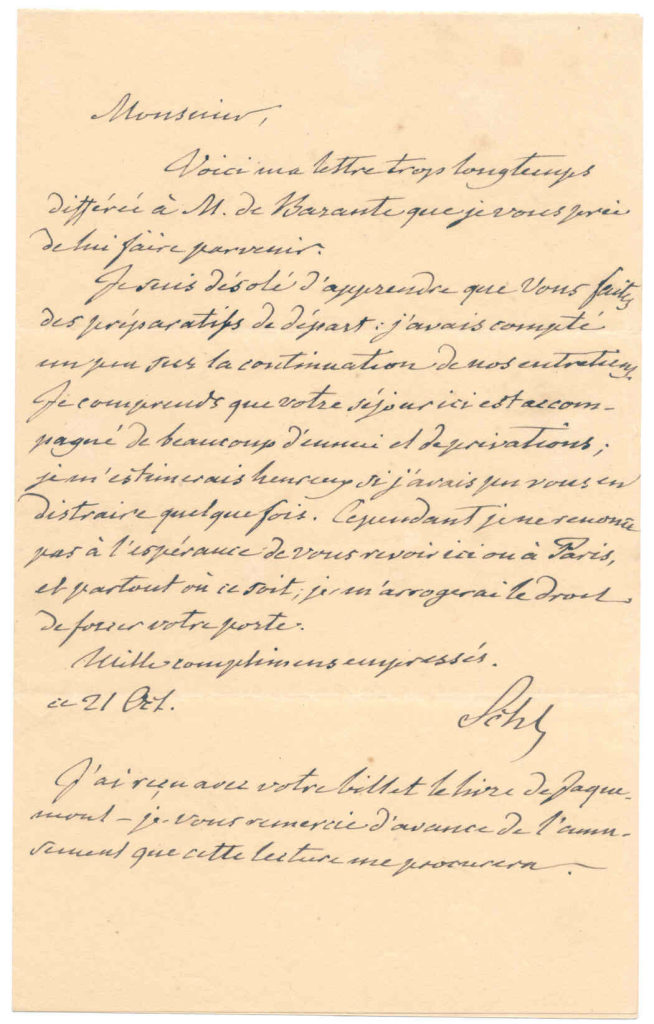 Monsieur,
Voici ma lettre trop longtemps
différée à M. de Barante que je vous prie
de lui faire parvenir.
Je suis désolé d'apprendre que Vous faites
des préparatifs de départ: j'avais compté
un peu sur la continuation de nos entretiens.
Je comprends que votre séjour ici est accom-
pagné de beaucoup d'ennui et de privations;
je m'estimerais heureux si j'avais pu vous en
distraire quelque fois. Cependant je ne renonce
pas à l'espérance de vous revoir ici ou à Paris,
et partout où ce soit, je m'arrogerai le droit
de forcer votre porte.
Mille complimens empressés.
ce 21 Oct.
Schl
J'ai reçu avec votre billet le livre de Jaque-
mont – je vous remercie d'avance de l'amu-
sement que cette lecture me procurera. –